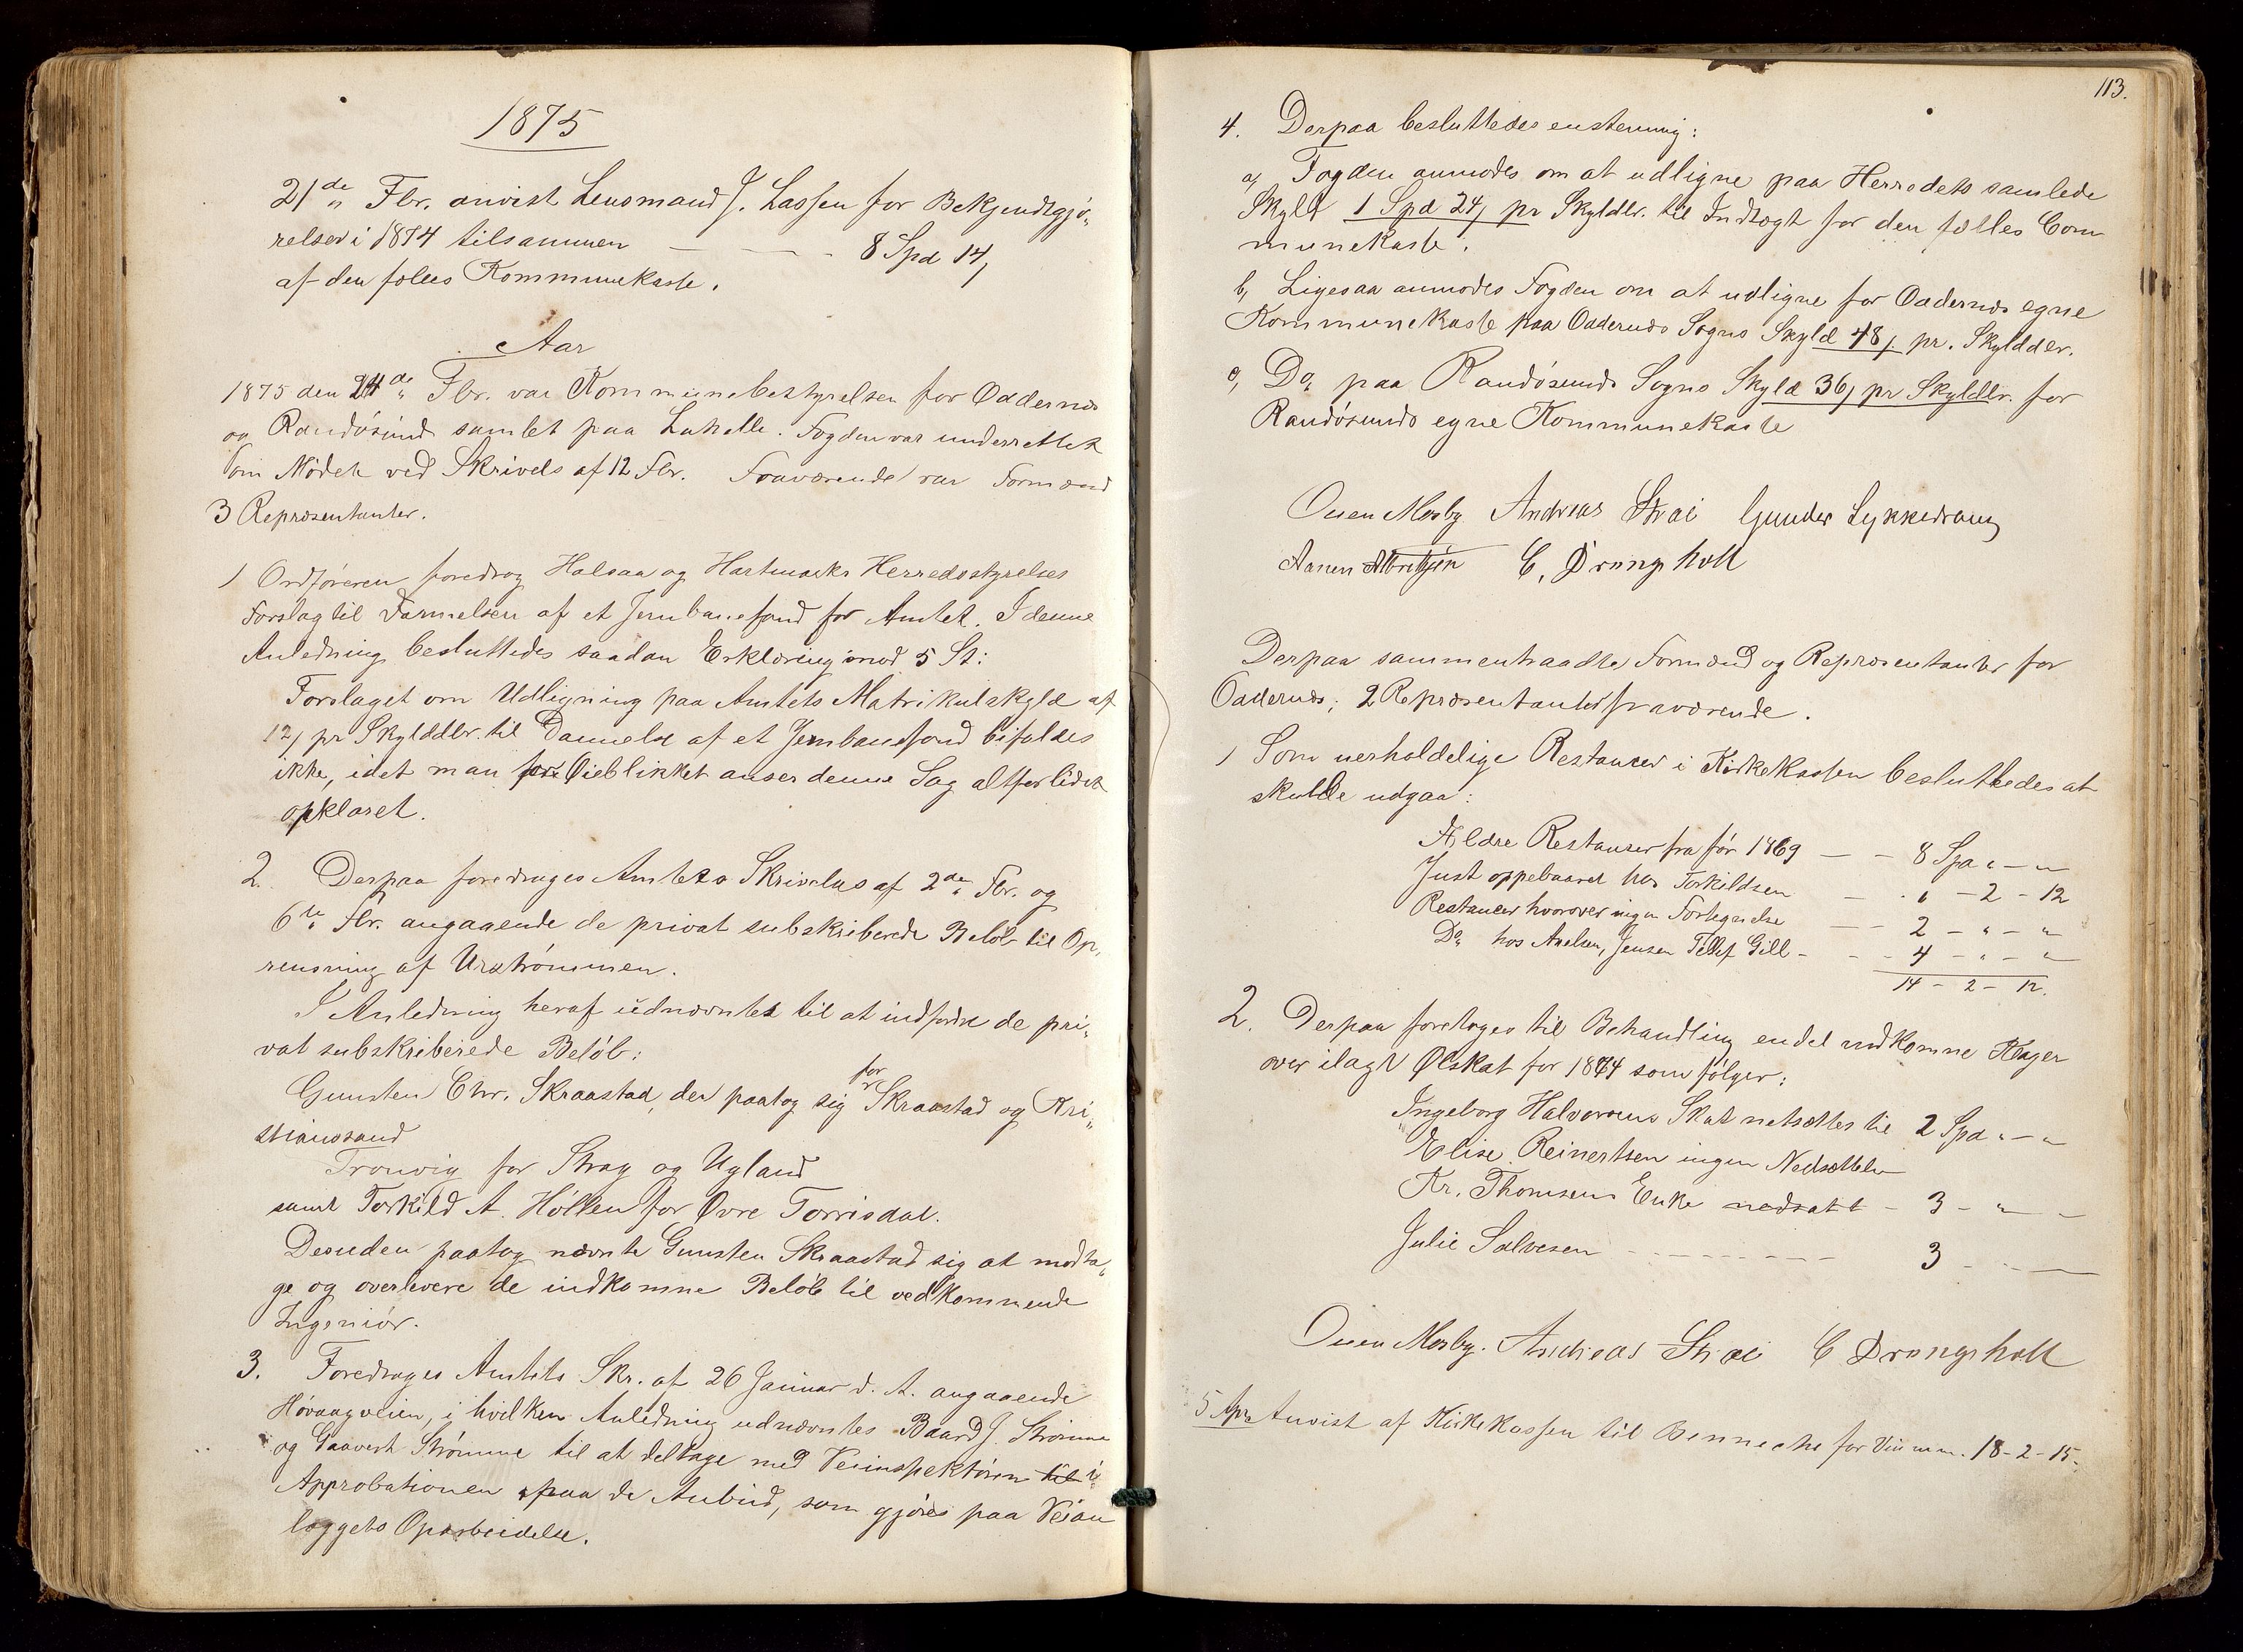 1875
21de Fbr. anvist Lensmand J. Lassen for Bekjendtgjø-
relser i 1874 tilsammen — — - 8 Spd 14,
af den fælles Kommunekasse.
Aar
1875 den 24de Fbr. var Kommunebestyrelsen for Oddernes
og Randøsund samlet paa Lahelle. Fogden var underrettet
om Mødet ved Skrivels af 12 Fbr. Fraværende var Formænd
3 Repræsentanter.
1 Ordføreren foredrog Halsaa og Hartmarks Herredsstyrelses
Forslag til Dannelsen af et Jernbanefond for Amtet. I denne
Anledning besluttedes saadan Erklæring mod 5 St:
Forslaget om Udligning paa Amtets Matrikulskyld af
12, pr Skylddlr. til Dannelse af et Jernbanefond bifaldes
ikke, idet man for Øieblikket anser denne Sag altfor lidet
opklaret.
2. Derpaa foredroges Amtets Skrivelse af 2de Fbr. og
6te Fbr. angaaende de privat subskriberede Beløb til Op-
rensning af Urstrømmen.
I Anledning heraf udnævntes til at indfordre de pri-
vat subskriberede Beløb:
for
Gunsten Chr. Skraastad, der paatog sig Skraastad og Kri-
stianssand
Tronvig for Stray og Ugland
samt Torkild A. Høllen for Øvre Torrisdal.
Desuden paatog nævnte Gunsten Skraastad sig at modta-
ge og overlevere de indkomne Beløb til vedkommende
Ingeniør.
3. Foredroges Amtets Skr. af 26 Januar d. A. angaaende
Høvaagveien, i hvilken Anledning udnævntes Baard J. Strømme
og Gaavert Strømme til at deltage med Veiinspektøren til i
Approbationen paa de Anbud, som gjøres paa Veian
læggets Oparbeidelse.
113.
4. Derpaa besluttedes enstemmig:
a, Fogden anmodes om at udligne paa Herredets samlede
Skyld 1 Spd 24, pr Skylddlr. til Indtægt for den fælles Com
munekasse.
b, Ligesaa anmodes Fogden om at udligne for Oddernes egne
Kommunekasse paa Oddernes Sogns Skyld 48, pr. Skylddlr.
c, Do paa Randøsunds Sogns Skyld 36, pr Skylddlr. for
Randøsunds egne Kommunekasse
Ouen Mosby Andreas Strai Gunder Lykkedrang
Aanen C. Drangsholt
Derpaa sammentraadte Formænd og Repræsentanter for
Oddernes; 2 Repræsentanter fraværende.
1 Som uerholdelige Restancer i Kirkekassen besluttedes at
skulde udgaa:
Ældre Restancer fra før 1869 — - 8 Spd " - "
Just oppebaaret hos Torkildsen — " - 2 - 12
Restancer hvorover ingen Fortegnelse — 2 - " - "
Do hos Axelsen, Jensen Tellef Gill - - - 4 - " - "
14 - 2 - 12.
2. Derpaa foretoges til Behandling endel indkomne Klager
over ilagt Ølskat for 1874 som følger:
Ingeborg Halvorsens Skat nedsættes til 2 Spd " - "
Elise Reinertsen ingen Nedsættelse
Kr. Thomsens Enke nedsatt - 3 - " -
Julie Salvesen - - - - - 3 - - -
Ouen Mosby. Andreas Strai C Drangsholt
5 Apr. Anvist af Kirkekassen til Benneche for Vin m.m. 18-2-15.